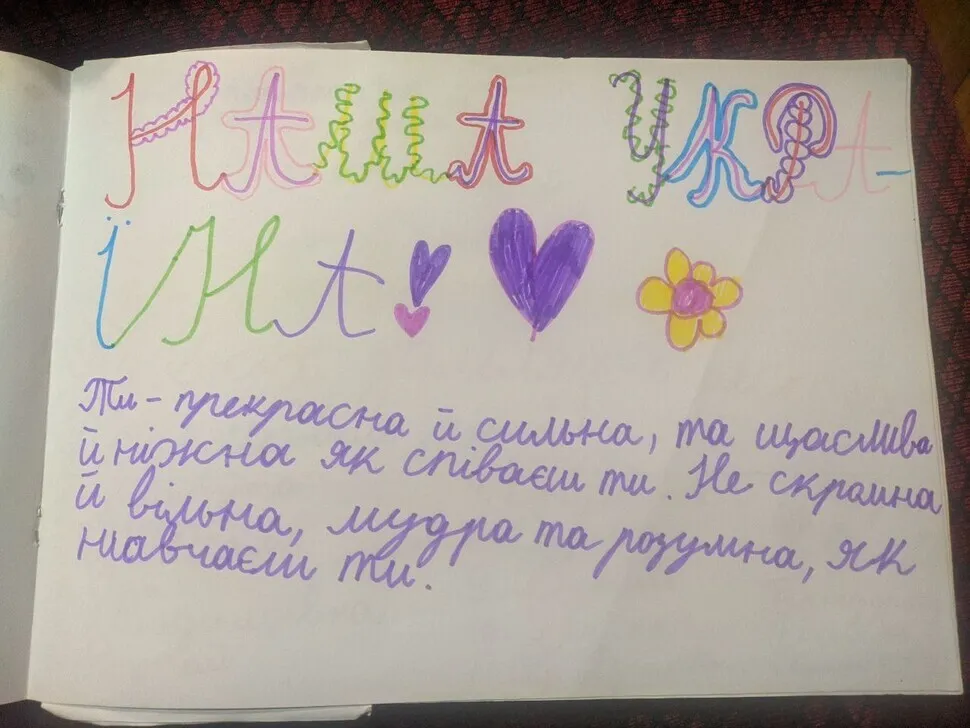 Наша Укра-
їна
Ти - прекрасна й сильна, та щаслива
й ніжна як співаєш ти. Не скромна
й вільна, мудра та розумна, як
навчаєш ти.